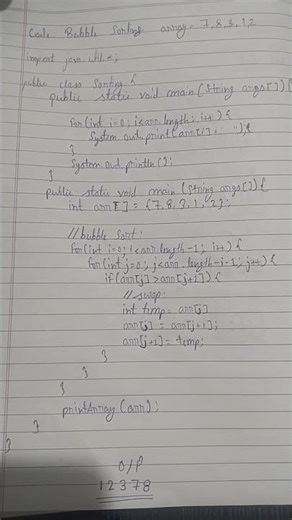 Code Bubble Sorting array = 7, 8, 3, 1, 2
import java.util.*;
public class Sorting {
public static void main(String args[]) {
for(int i=0; i<arr.length; i++) {
System.out.print(arr[i]+" ");
}
System.out.println();
}
public static void main (String args[]) {
int arr[] = {7, 8, 3, 1, 2};
//bubble sort:
for(int i=0; i<arr.length-1; i++) {
for(int j=0; j<arr.length-i-1; j++) {
if(arr[j]>arr[j+1]) {
//swap
int temp = arr[j]
arr[j] = arr[j+1];
arr[j+1] = temp;
}
}
}
printArray(arr);
}
}
O/P
1 2 3 7 8